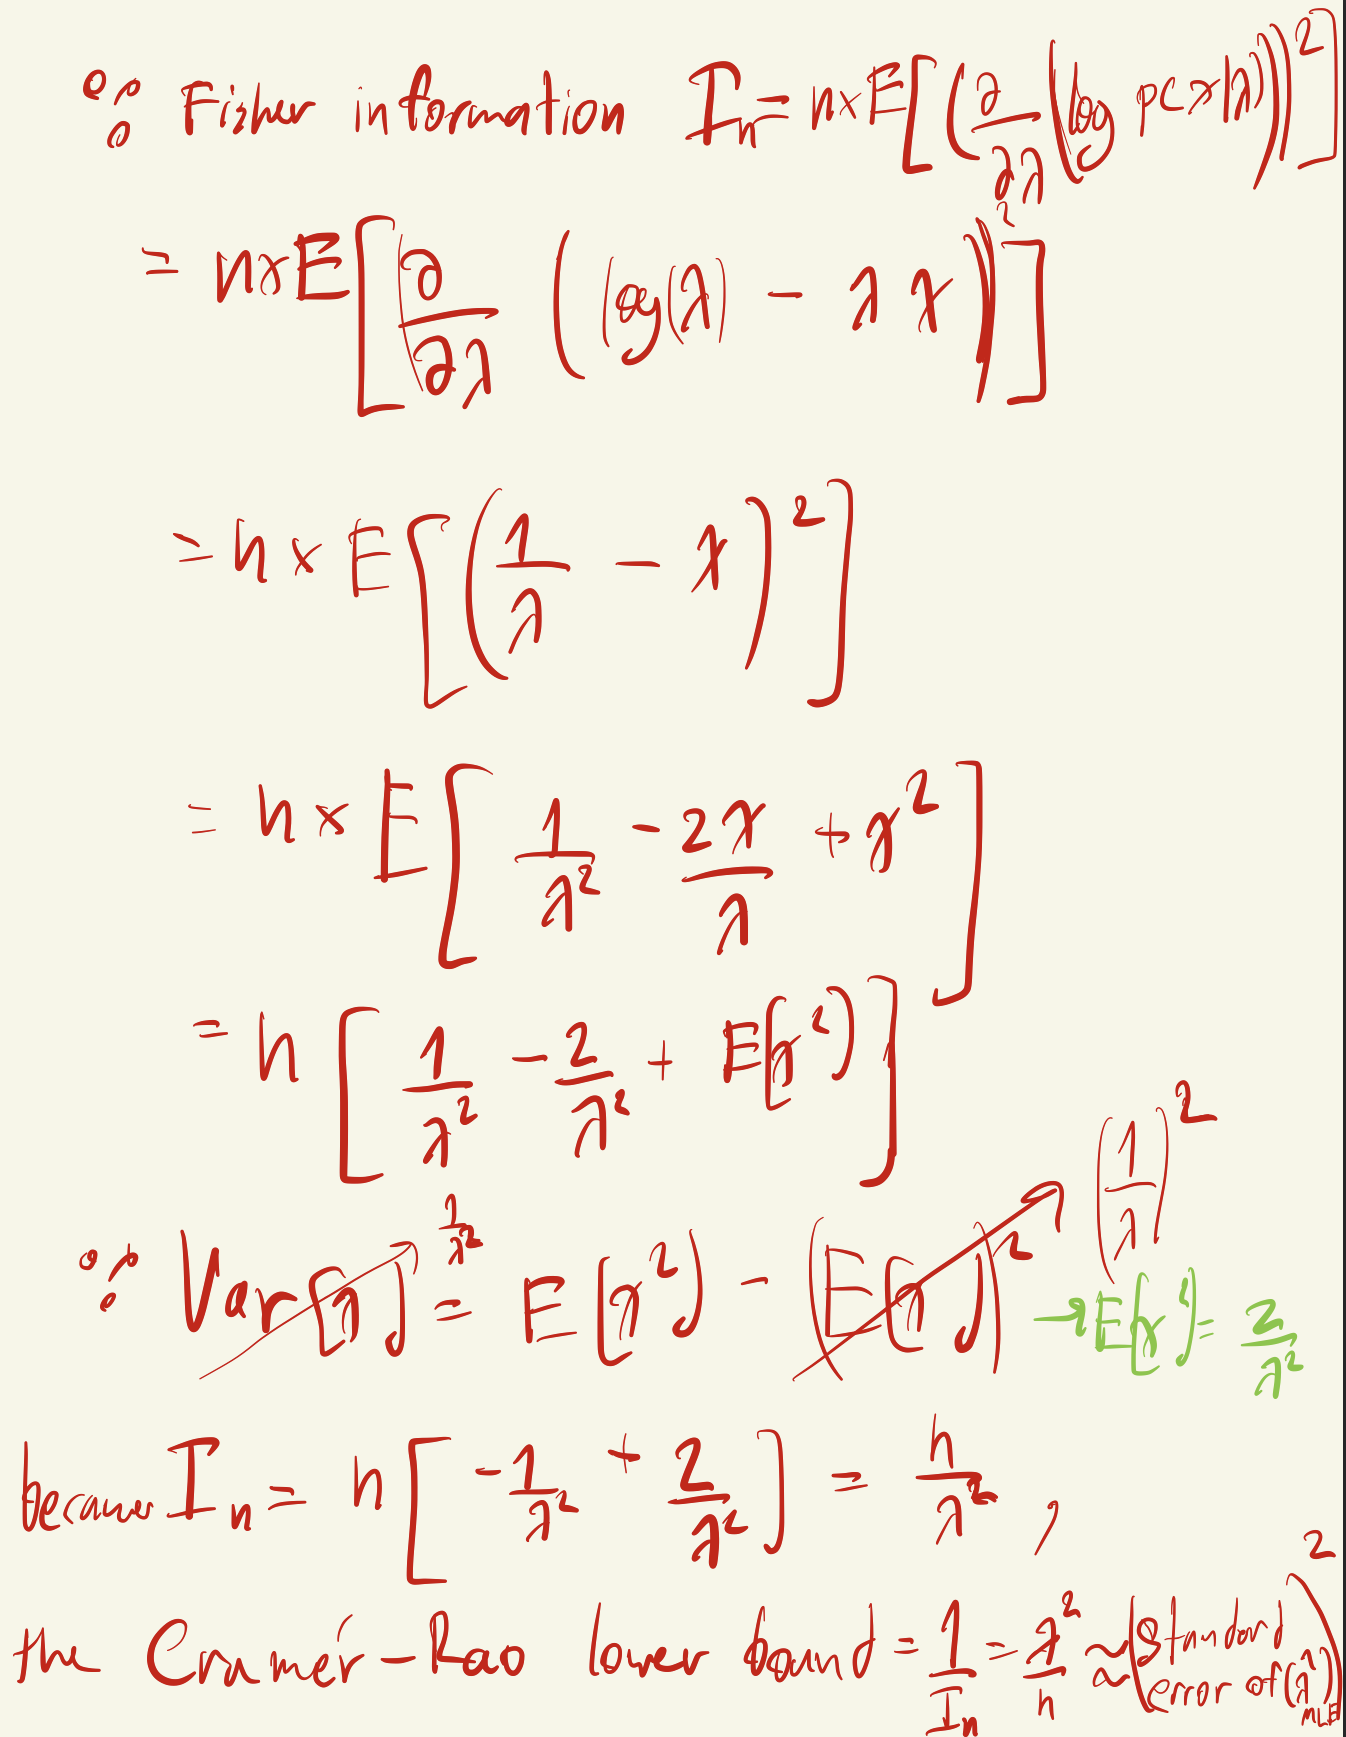 ∵ Fisher information I_n = n × E[(∂/∂λ (log p(x|λ)))^2]
= n × E[(∂/∂λ (log(λ) - λ x))^2]
= n × E[(1/λ - x)^2]
= n × E[1/λ^2 - 2x/λ + x^2]
= n [1/λ^2 - 2/λ^2 + E(x^2)]
∵ Var(x) 1/λ^2 = E(x^2) - (E(x))^2 (1/λ)^2 → E(x^2) = 2/λ^2
because I_n = n [-1/λ^2 + 2/λ^2] = n/λ^2 ,
the Cramér-Rao lower bound = 1/I_n = λ^2/n ≈ (standard error of (λ̂)_MLE)^2